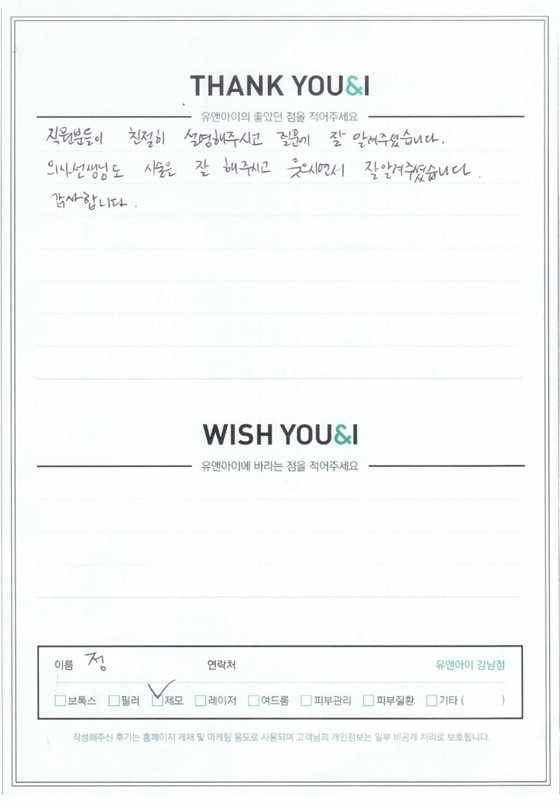 THANK YOU&I
유앤아이의 좋았던 점을 적어주세요
직원분들이 친절히 설명해주시고 질문에 잘 알려주셨습니다.
의사선생님도 시술은 잘 해주시고 웃으시면서 잘알려주셨습니다.
감사합니다.
WISH YOU&I
유앤아이에 바라는 점을 적어주세요
이름 정 연락처 유앤아이 강남점
보톡스 필러 제모 레이저 여드름 피부관리 피부질환 기타 ( )
작성해주신 후기는 홈페이지 게재 및 마케팅 용도로 사용되며 고객님의 개인정보는 일부 비공개 처리로 보호됩니다.